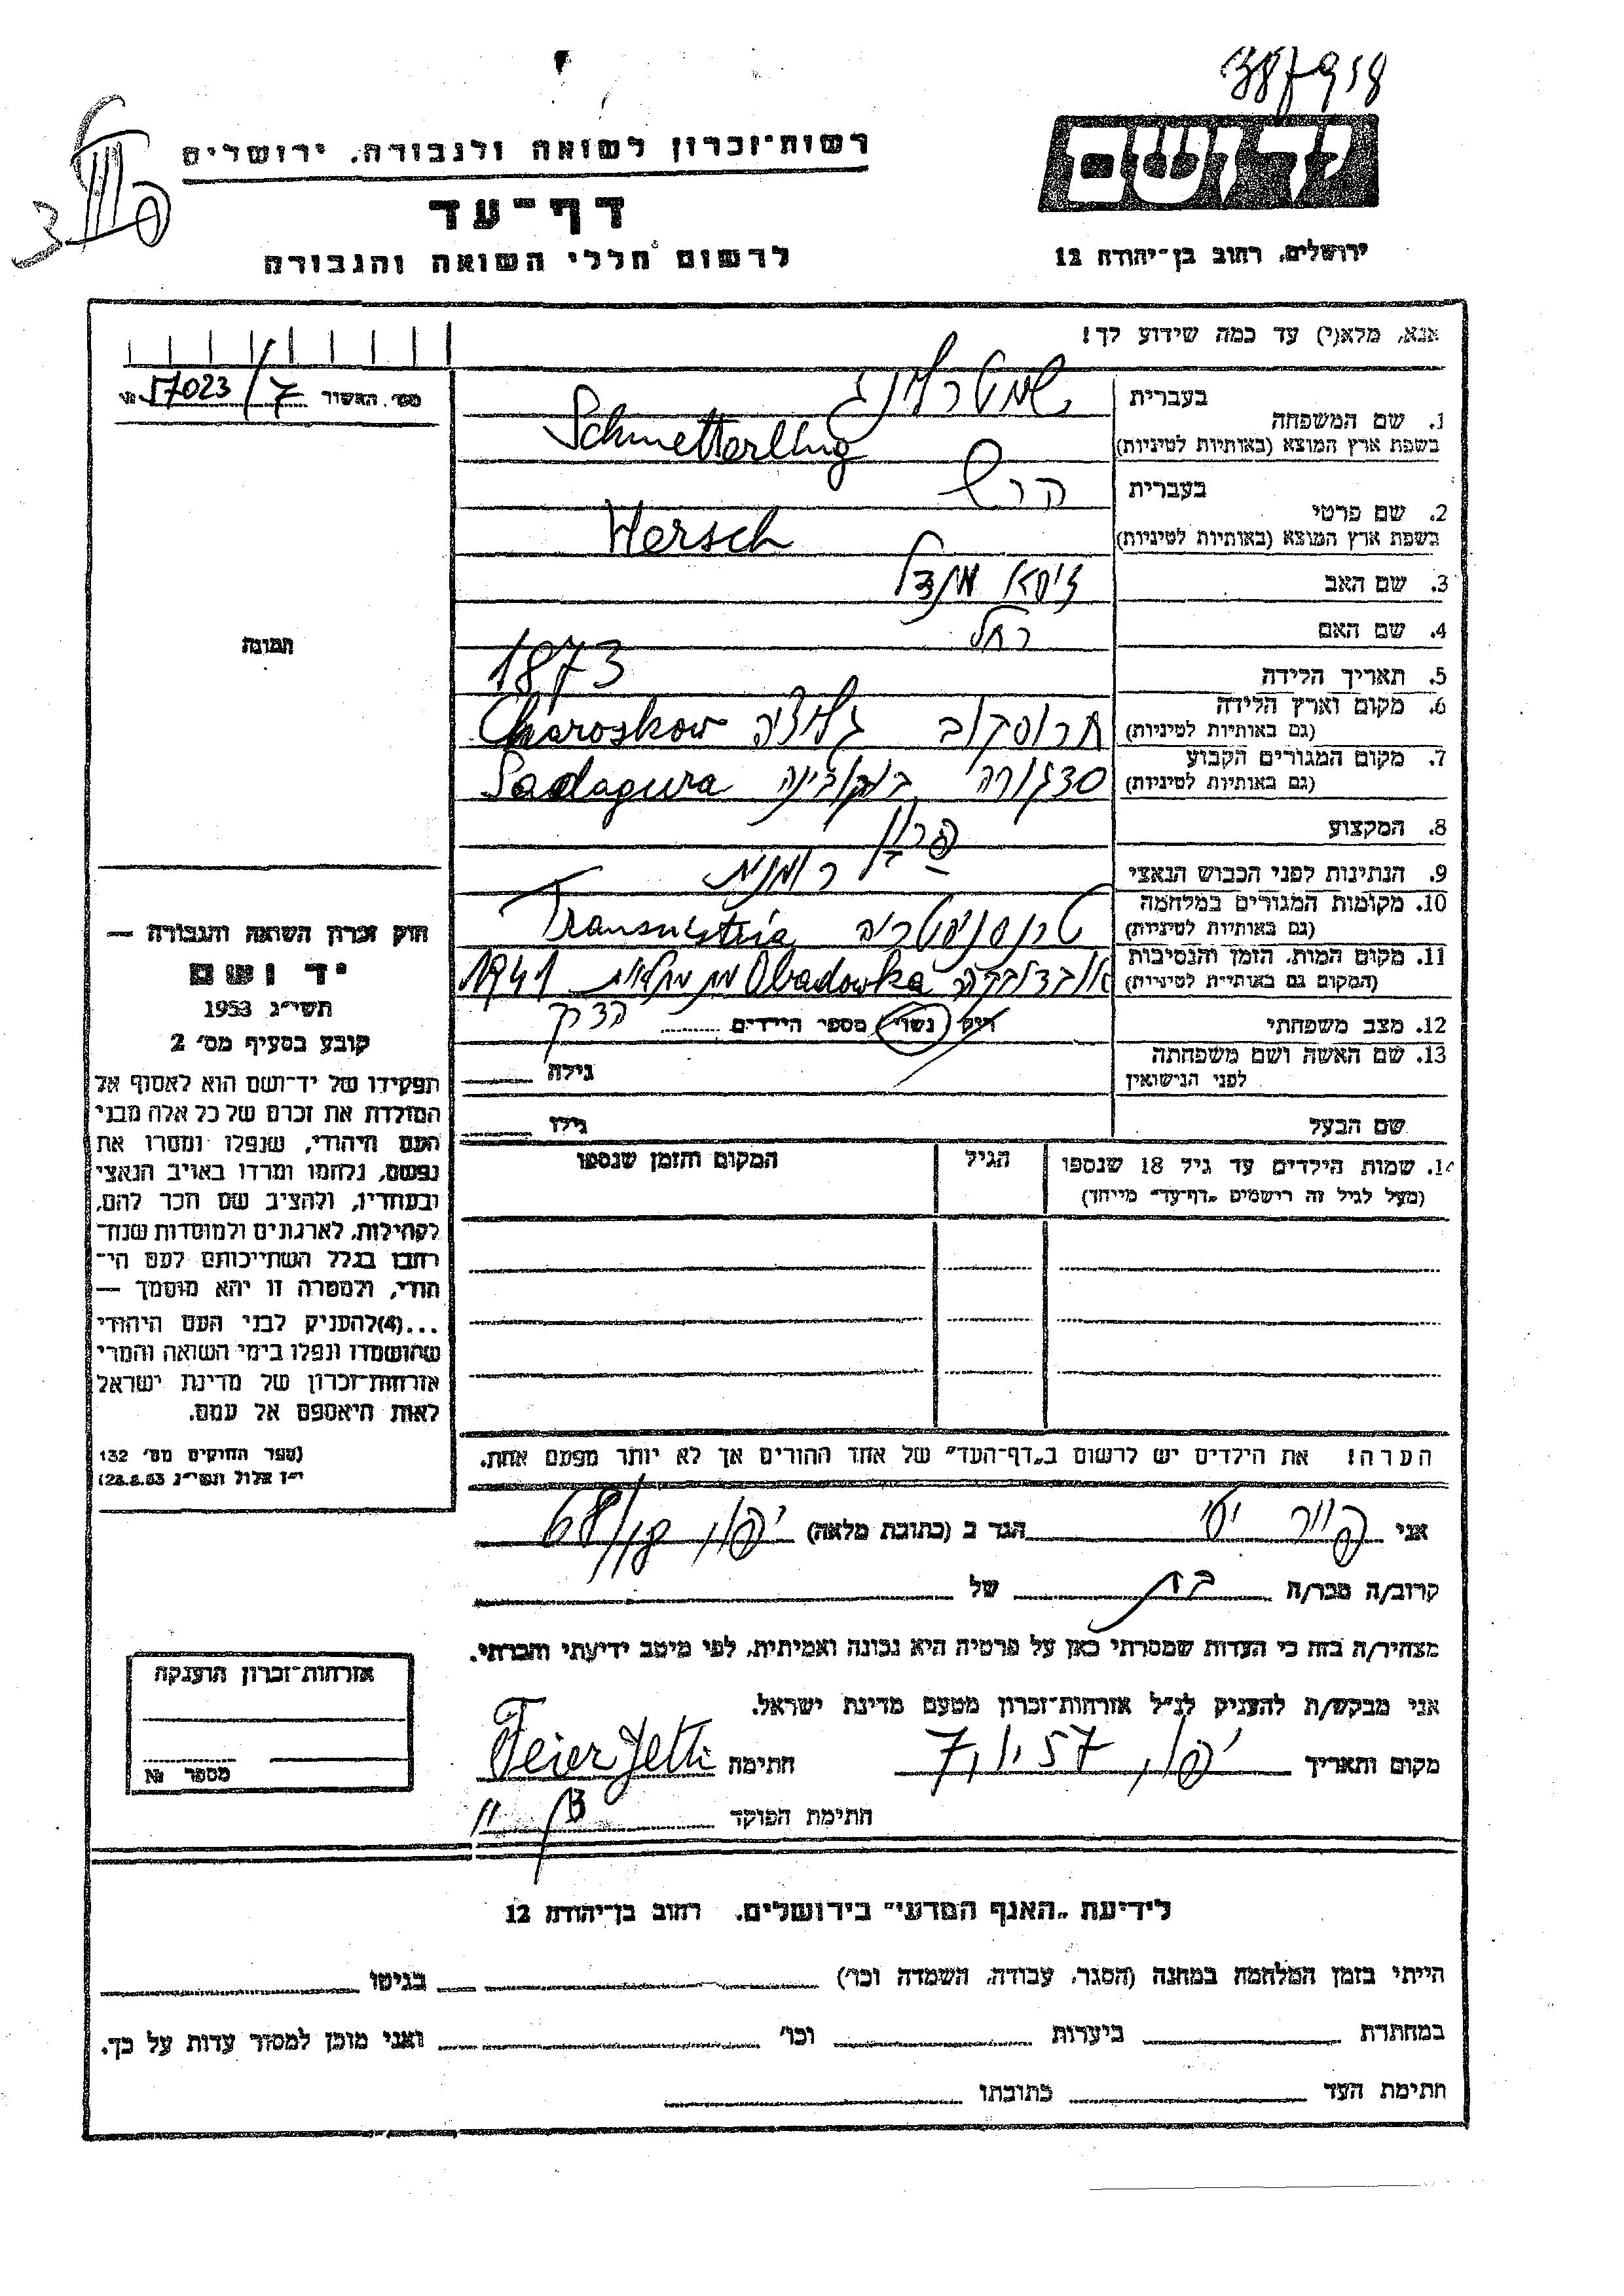 387918
רשות־זכרון לשואה ולגבורה, ירושלים
יד ושם
דף־עד
לרשום חללי השואה והגבורה
ירושלים, רחוב בן־יהודה 12
אנא, מלא(י) עד כמה שידוע לך!
מס׳ האשור 17023/7 №
1. שם המשפחה בעברית שמטרלינג
בשפת ארץ המוצא (באותיות לטיניות) Schmetterling
2. שם פרטי בעברית הרש
בשפת ארץ המוצא (באותיות לטיניות) Hersch
3. שם האב
4. שם האם רחל
5. תאריך הלידה 1873
6. מקום וארץ הלידה (גם באותיות לטיניות) חרוסקוב גליציה Charoskow
7. מקום המגורים הקבוע (גם באותיות לטיניות) סדגורה בוקובינה Sadagura
8. המקצוע
9. הנתינות לפני הכבוש הנאצי רומנית
10. מקומות המגורים במלחמה (גם באותיות לטיניות) טרנסניסטריה Transnistria
11. מקום המות, הזמן והנסיבות (המקום גם באותיות לטיניות) אובדובקה Obadowka מת 1941
12. מצב משפחתי רוק נשוי מספר הילדים
13. שם האשה ושם משפחתה לפני הנישואין גילה
שם הבעל גילו
14. שמות הילדים עד גיל 18 שנספו הגיל המקום והזמן שנספו
(מעל לגיל זה רישמים „דף־עד״ מייחד)
הערה! את הילדים יש לרשום ב„דף־העד״ של אחד ההורים אך לא יותר מפעם אחת.
תמונה
חוק זכרון השואה והגבורה —
יד ושם
תשי״ג 1953
קובע בסעיף מס׳ 2
תפקידו של יד־ושם הוא לאסוף אל
המולדת את זכרם של כל אלה מבני
העם היהודי, שנפלו ומסרו את
נפשם, נלחמו ומרדו באויב הנאצי
ובעוזריו, ולהציב שם וזכר להם,
לקהילות, לארגונים ולמוסדות שנח־
רבו בגלל השתייכותם לעם הי־
הודי, ולמטרה זו יהא מוסמך —
...(4)להעניק לבני העם היהודי
שהושמדו ונפלו בימי השואה והמרי
אזרחות־זכרון של מדינת ישראל
לאות היאספם אל עמם.
(ספר החוקים מס׳ 132
י״ז אלול תשי״ג 28.8.53)
אני פייר יטי הגר ב (כתובת מלאה)
קרוב/ה מכר/ה בת של
מצהיר/ה בזה כי העדות שמסרתי כאן על פרטיה היא נכונה ואמיתית, לפי מיטב ידיעתי והכרתי.
אני מבקש/ת להעניק לנ״ל אזרחות־זכרון מטעם מדינת ישראל.
מקום ותאריך חתימה Feier Jetti
חתימת הפוקד
אזרחות־זכרון הוענקה
מספר №
לידיעת „האגף המדעי״ בירושלים, רחוב בן־יהודה 12
הייתי בזמן המלחמה במחנה (הסגר, עבודה, השמדה וכו׳) בגיטו
במחתרת ביערות וכו׳ ואני מוכן למסור עדות על כך.
חתימת העד כתובתו